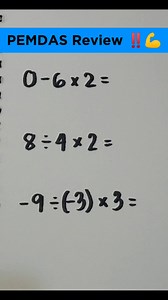 PEMDAS Review ‼️💪
0 - 6 × 2 =
8 ÷ 4 × 2 =
-9 ÷ (-3) × 3 =